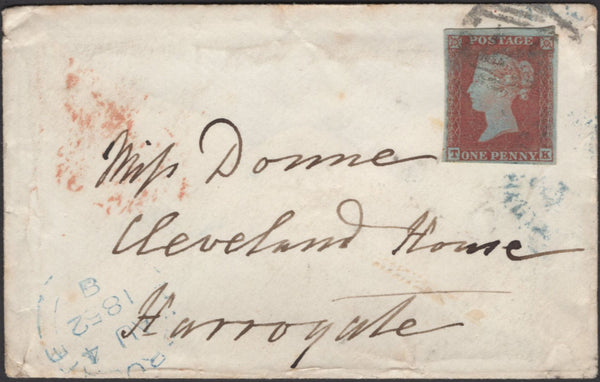 POSTAGE
T ONE PENNY K
Miss Donne
Cleveland House
Harrogate
1852